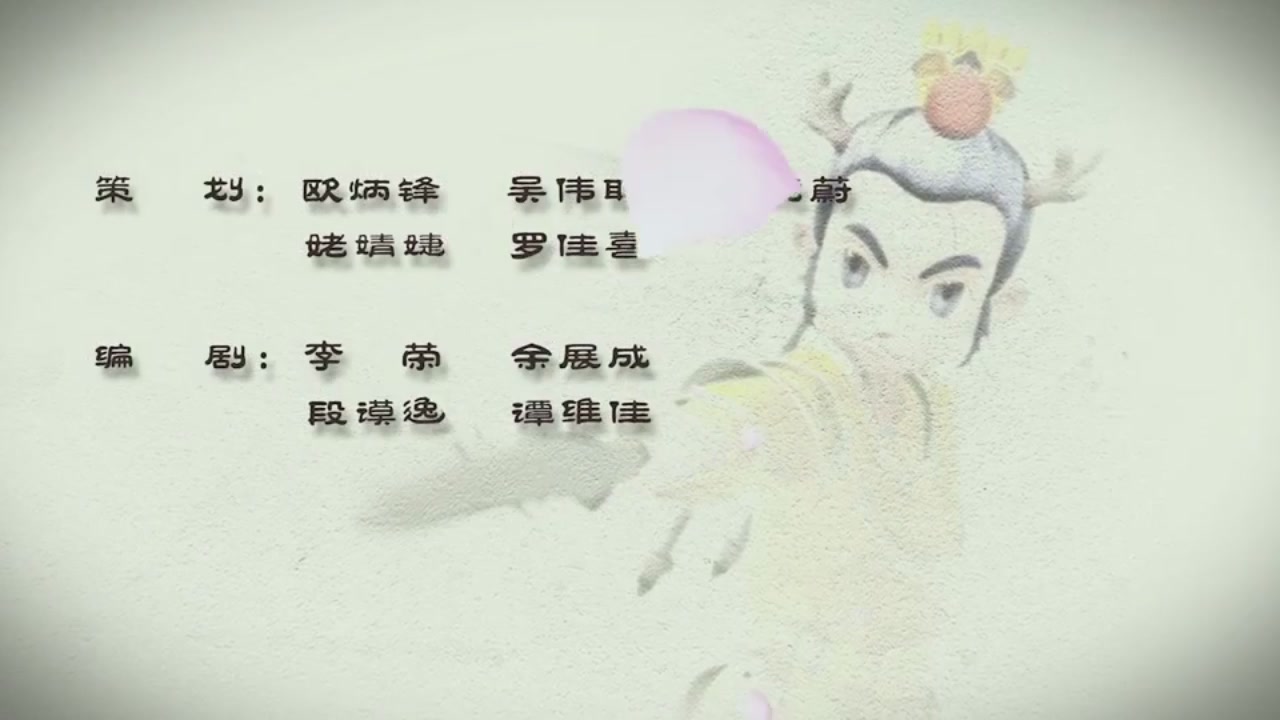 策 划：欧炳锋 吴伟 蔚
姥婧婕 罗佳喜
编 剧：李 荣 余展成
段谟逸 谭维佳